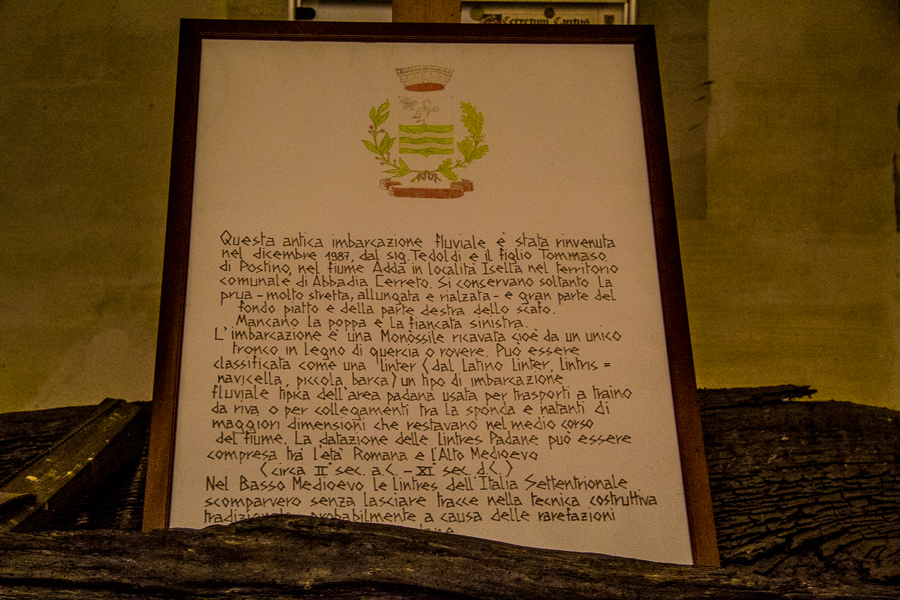 Cerretum Cantus
Questa antica imbarcazione fluviale è stata rinvenuta
nel dicembre 1987, dal sig. Tedoldi e il figlio Tommaso.
di Postino, nel fiume Adda in località Isella nel territorio
comunale di Abbadia Cerreto. Si conservano soltanto la
prua - molto stretta, allungata e rialzata - e gran parte del
fondo piatto e della parte destra dello scafo.
Mancano la poppa e la fiancata sinistra.
L'imbarcazione è una Monòssile ricavata cioè da un unico
tronco in legno di quercia o rovere. Può essere
classificata come una "linter (dal Latino linter, lintris =
navicella, piccola barca) un tipo di imbarcazione
fluviale tipica dell'area padana usata per trasporti a traino
da riva o per collegamenti tra la sponda e natanti di
maggiori dimensioni che restavano nel medio corso
del fiume. La datazione delle lintres Padane può essere
compresa tra l'età Romana e l'Alto Medioevo
(circa II° sec. a.C. - XI° sec. d.C.)
Nel Basso Medioevo le lintres dell'Italia Settentrionale
scomparvero senza lasciare tracce nella tecnica costruttiva
tradizionale probabilmente a causa delle rarefazioni